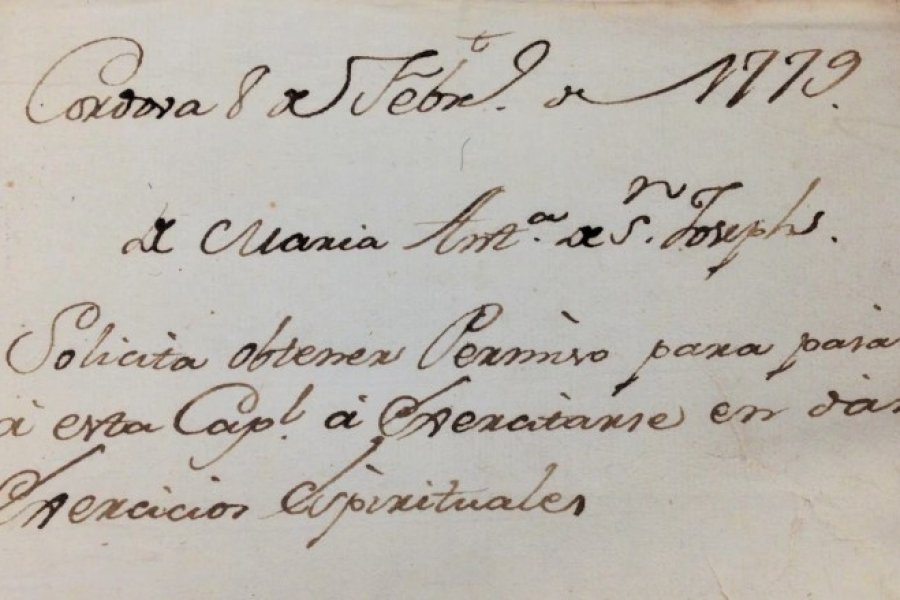 Cordova 8 de Febro. de 1779.
de Maria Anta. de Sn. Joseph.
Solicita obtener Permiso para pasa
à esta Capl. à Exercitarse en dar
Exercicios Espirituales